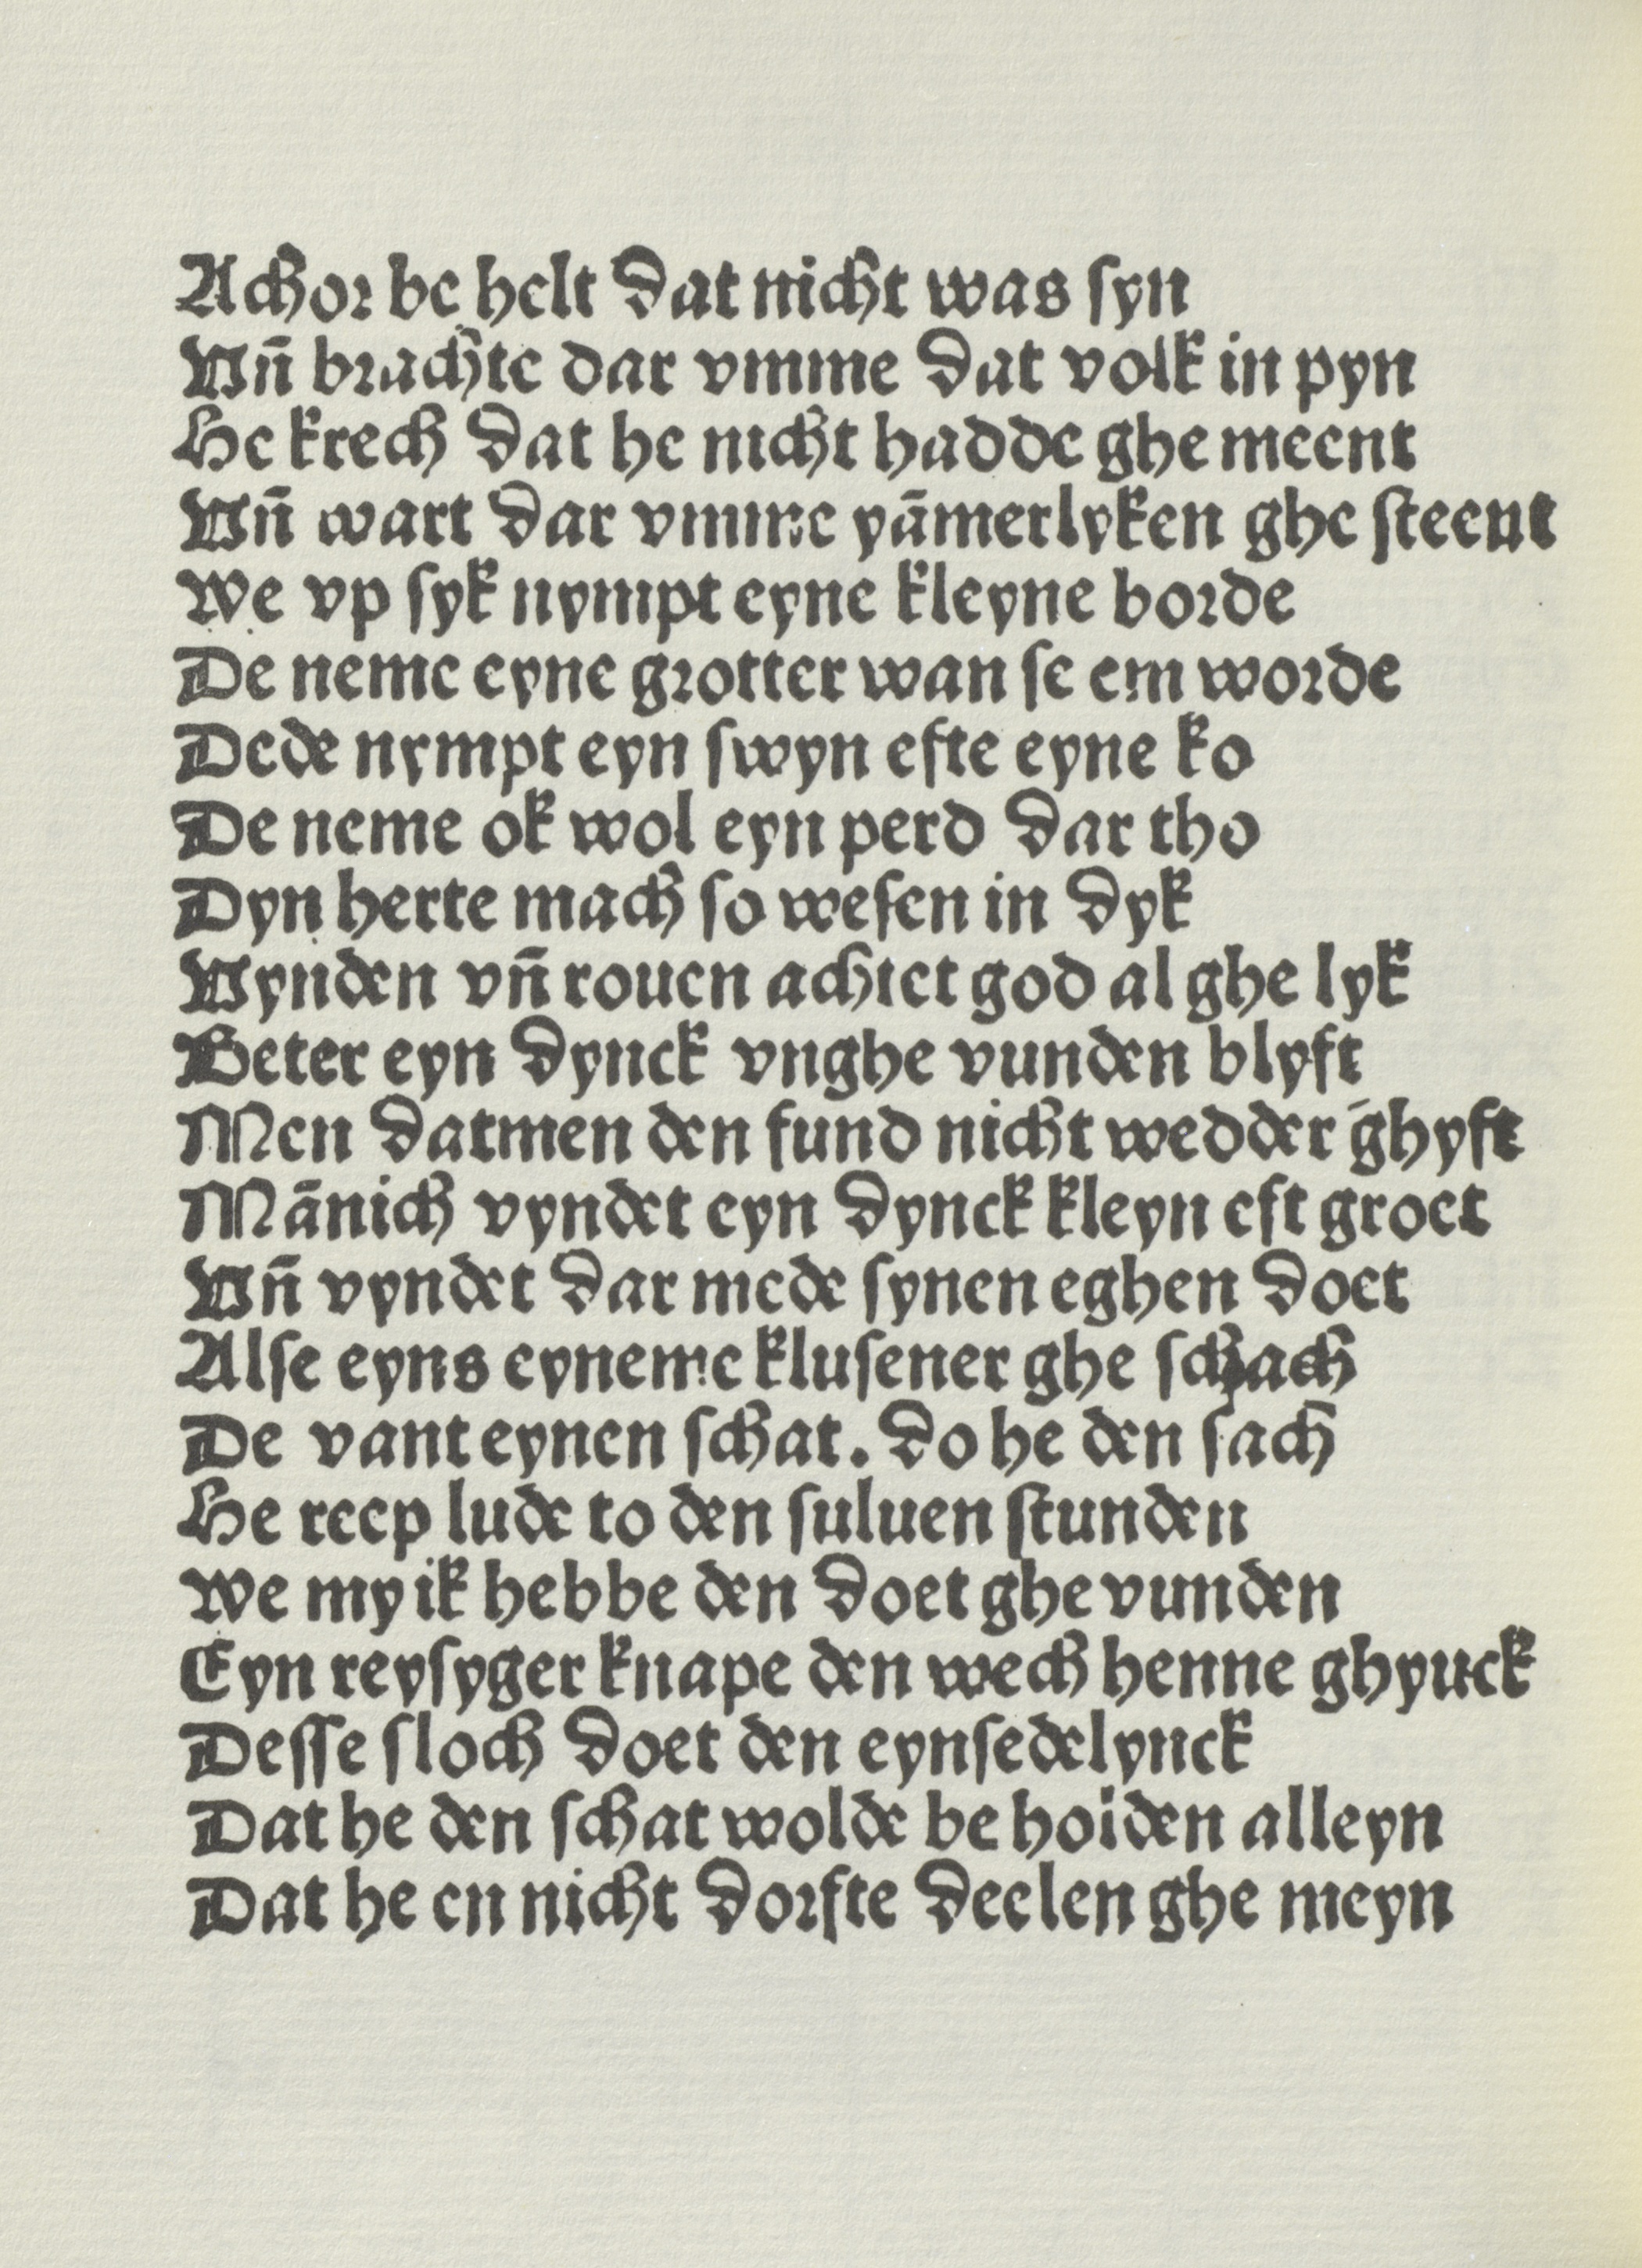 Achor be helt dat nicht was ſyn
Vn̄ brachte dar vmme dat volk in pyn
He krech dat he nicht hadde ghe meent
Vn̄ wart dar vmme yāmerlyken ghe ſteent
We vp ſyk nympt eyne kleyne borde
De neme eyne grotter wan ſe em worde
Dede nympt eyn ſwyn efte eyne ko
De neme ok wol eyn perd dar tho
Dyn herte mach ſo weſen in dyk
Vynden vn̄ rouen achtet god al ghe lyk
Beter eyn dynck vnghe vunden blyft
Men datmen den fund nicht wedder ḡhyft
Mānich vyndet eyn dynck kleyn eft groet
Vn̄ vyndet dar mede ſynen eghen doet
Alſe eyns eyneme kluſener ghe ſchach
De vant eynen ſchat. do he den ſach
He reep lude to den ſuluen ſtunden
We my ik hebbe den doet ghe vunden
Eyn reyſyger knape den wech henne ghynck
Deſſe ſloch doet den eynſedelynck
Dat he den ſchat wolde be holden alleyn
Dat he en nicht dorfte deelen ghe meyn